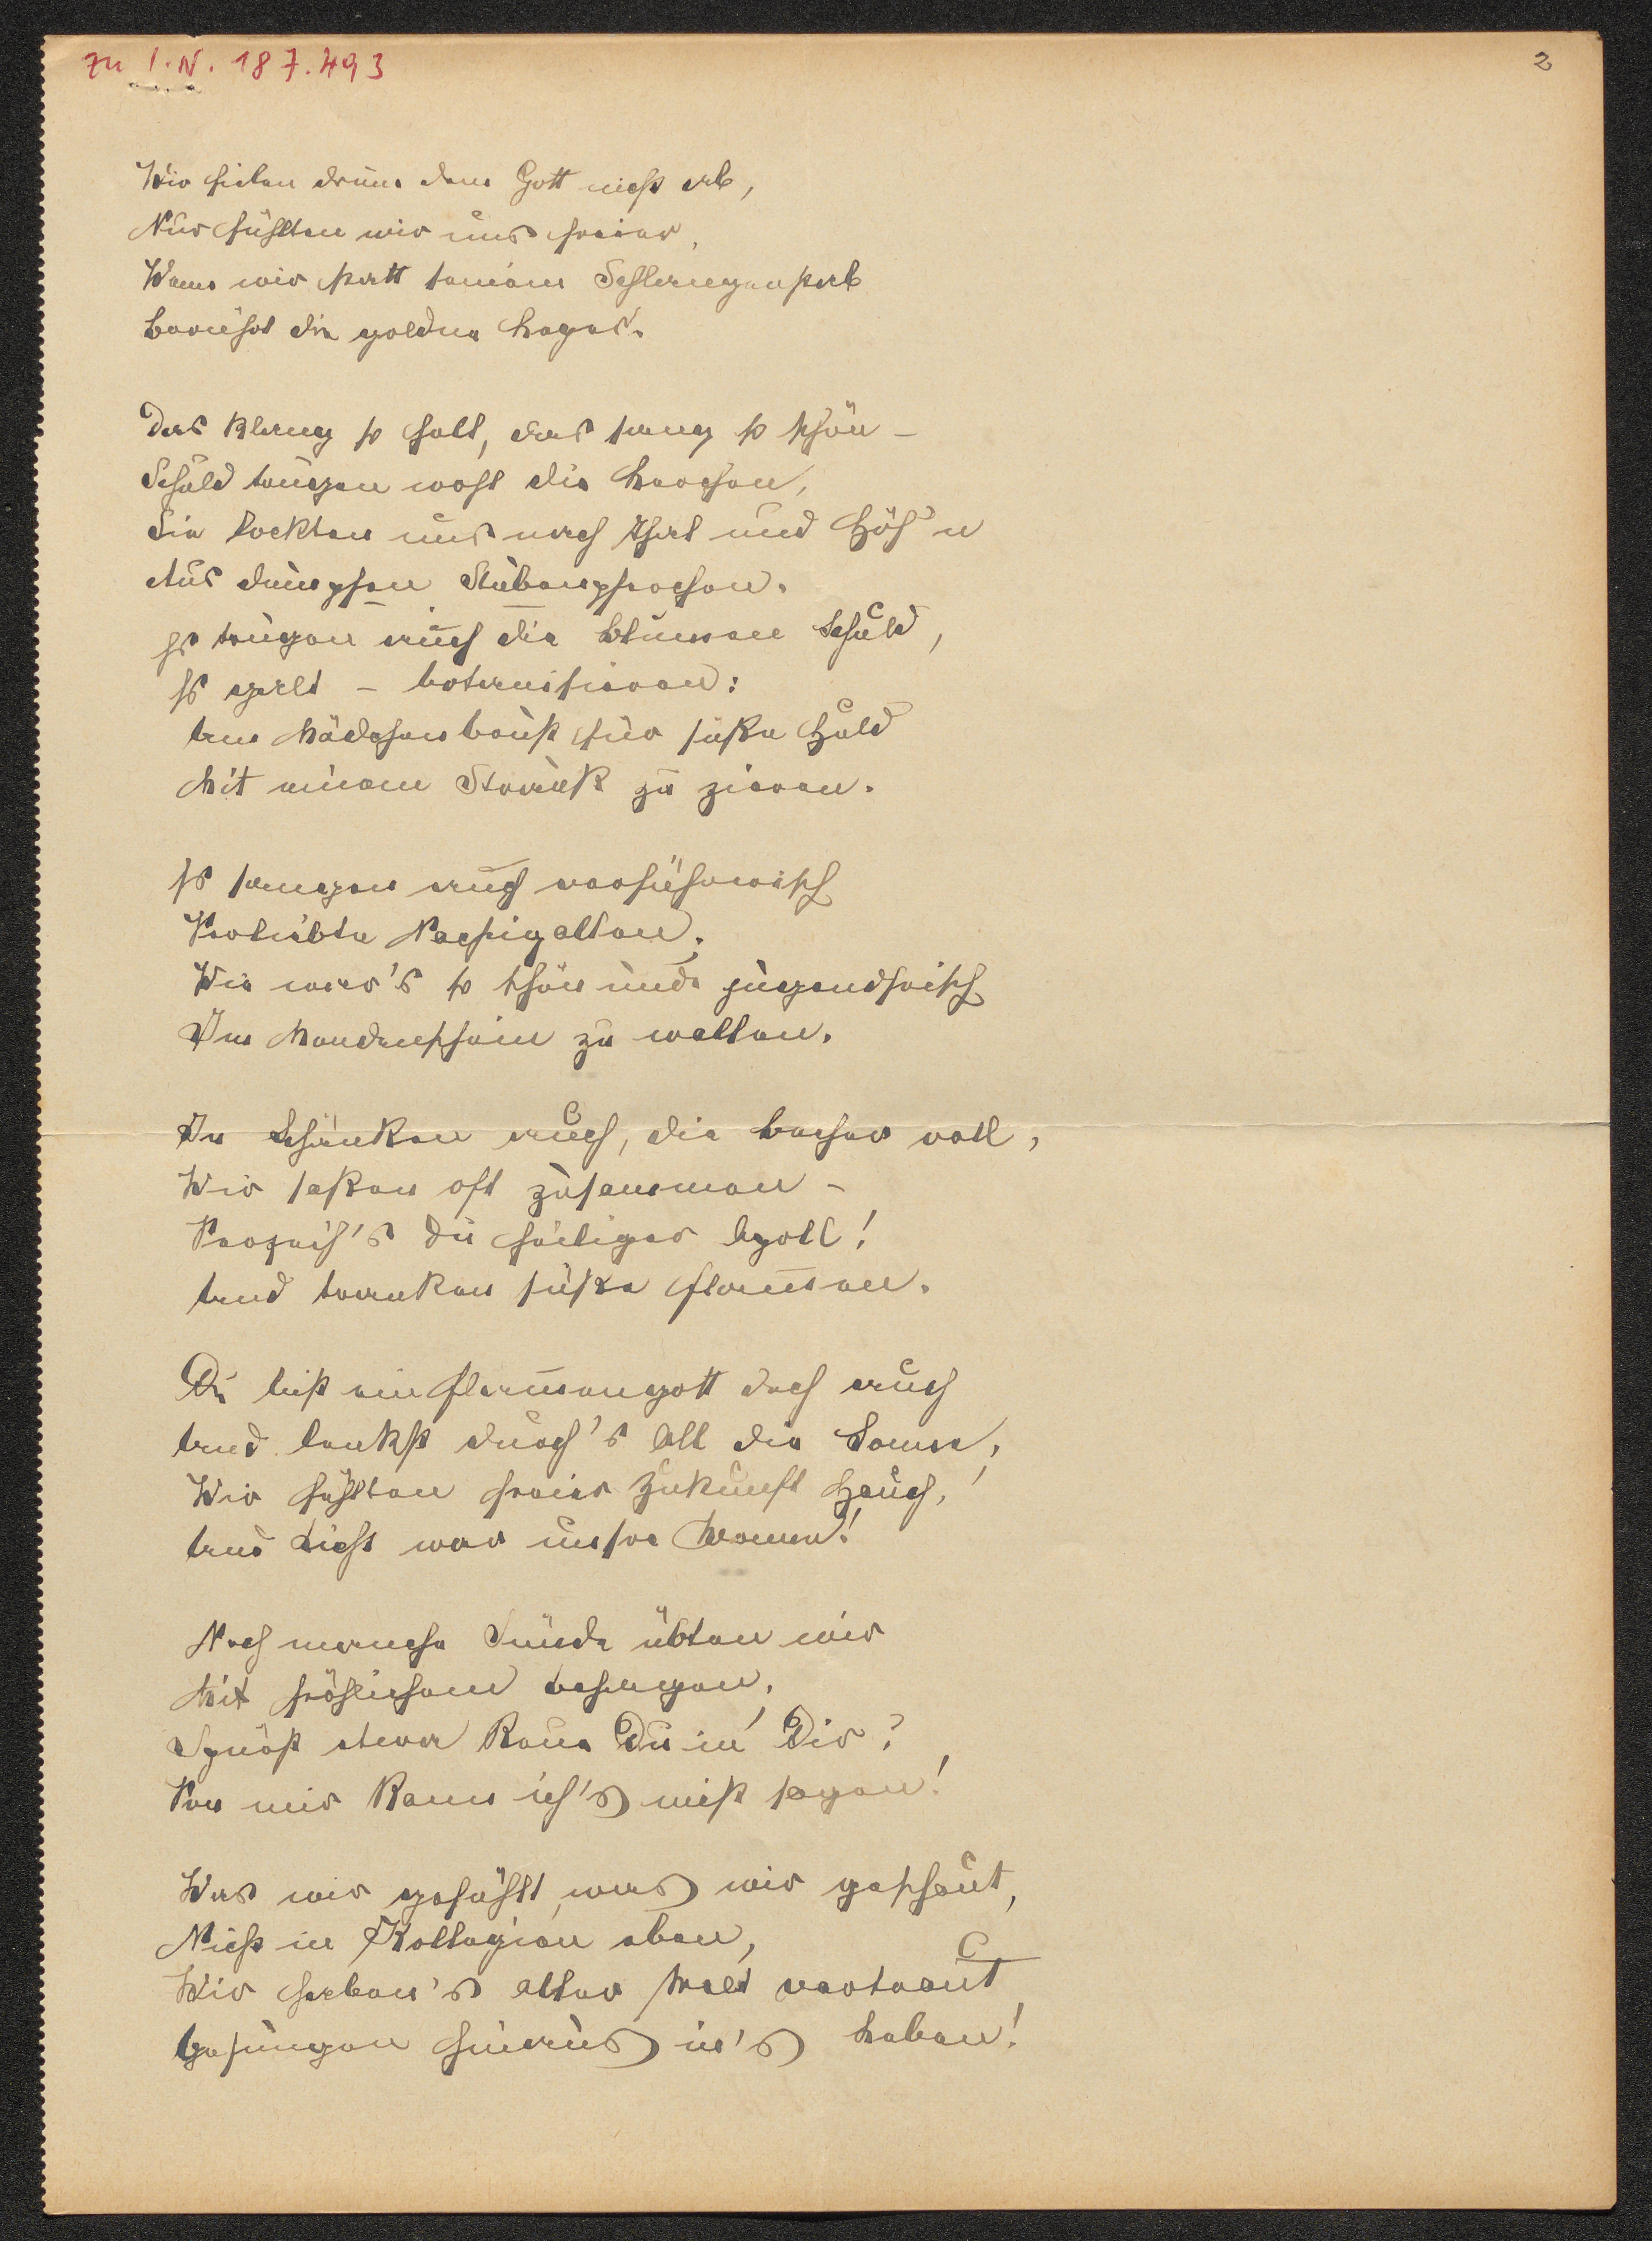 zu I.N. 187.493
2
Wir fielen drum dem Gott nicht ab,
Nur fühlten wir uns freier,
Wenn wir statt seinem Schlangenstab
Berührt die goldne Leyer.
Das klang so hell, das sang so schön –
Schuld trugen wohl die Lerchen,
Sie lockten uns nach Thal und Höh'n
Aus dumpfen Stubenpferchen.
Es trugen auch die Blumen Schuld,
Es galt – botanisieren:
Um Mädchenbrust für süße Huld
Mit einem Strauß zu zieren.
Es sangen auch verführerisch
Verliebte Nachtigallen,
Wie war's so schön und jugendfrisch
Im Mondenschein zu wallen.
In Schänken auch, die Becher voll,
Wir saßen oft zusammen –
Verzeih's du heiliger Apoll!
Und tranken süße Flammen.
Du bist ein Flammengott doch auch
Und lenkst durch's All die Sonne,
Wir fühlten freier Zukunft Hauch,
Und dieß war unsre Wonne!
Noch manche Sünde übten wir
Mit fröhlichem Behagen,
Spürst etwa Reue Du in Dir?
Von mir kann ich's nicht sagen!
Was wir gefühlt, was wir geschaut,
Nicht in Kollegien eben,
Wir haben's alter Welt vertraut
Gesungen hinaus in's Leben!